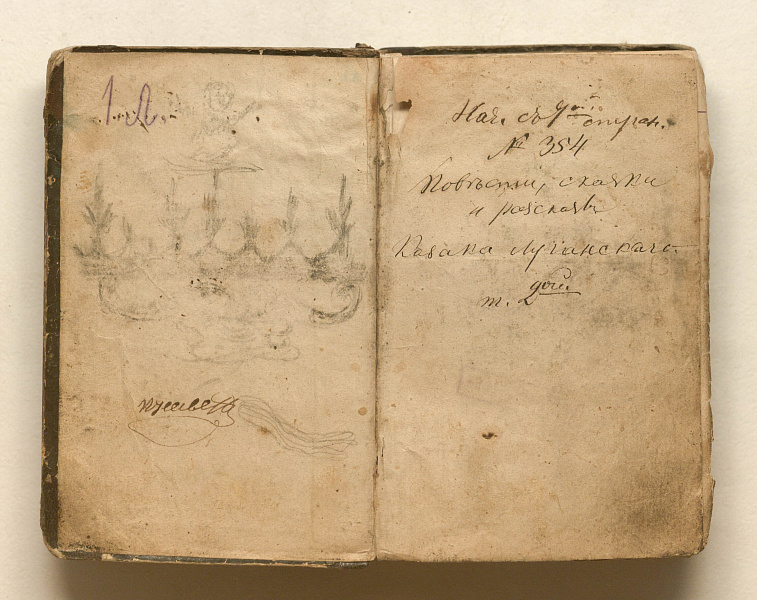 1.2.
Нач. съ 9ой стран.
№ 354
Повѣсти, сказки
и разсказы
Казака Луганскаго
т. 2